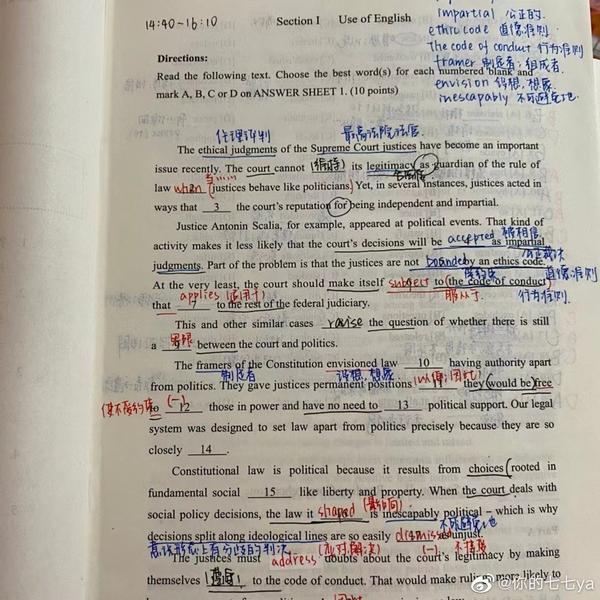 impartial 公正的.
14:40~16:10
Section I Use of English
ethic code 道德准则
the code of conduct 行为准则
Directions:
framer 制定者;组成者.
Read the following text. Choose the best word(s) for each numbered blank and
envision 设想,想象
mark A, B, C or D on ANSWER SHEET 1. (10 points)
inescapably 不可避免地.
伦理评判 最高法院法官.
The ethical judgments of the Supreme Court justices have become an important
issue recently. The court cannot its legitimacy as guardian of the rule of
law when justices behave like politicians. Yet, in several instances, justices acted in
ways that 3 the court's reputation for being independent and impartial.
Justice Antonin Scalia, for example, appeared at political events. That kind of
activity makes it less likely that the court's decisions will be accepted as impartial
judgments. Part of the problem is that the justices are not bound by an ethics code.
道德准则
At the very least, the court should make itself subject to (the code of conduct)
applies 服从于 行为准则.
that 7 to the rest of the federal judiciary.
This and other similar cases raise the question of whether there is still
界限
a 9 between the court and politics.
The framers of the Constitution envisioned law 10 having authority apart
制定者 设想,想象
from politics. They gave justices permanent positions 11 they (would be) free
to 12 those in power and have no need to 13 political support. Our legal
system was designed to set law apart from politics precisely because they are so
closely 14 .
Constitutional law is political because it results from choices rooted in
fundamental social 15 like liberty and property. When the court deals with
social policy decisions, the law it shaped is inescapably political – which is why
不可避免地
decisions split along ideological lines are so easily dismissed unjust.
意识形态上有分歧的判决
The justices must address doubts about the court's legitimacy by making
themselves to the code of conduct. That would make rulings more likely to
@你的七七ya